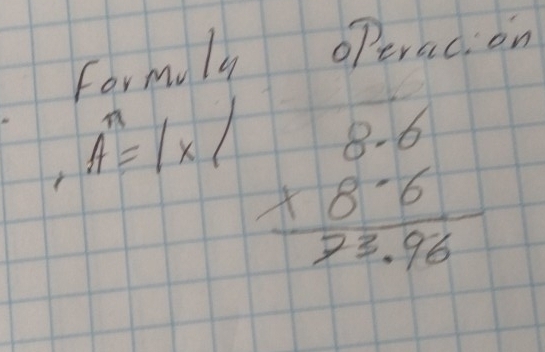 Formula operación
A = l x l
8.6
x 8.6
73.96